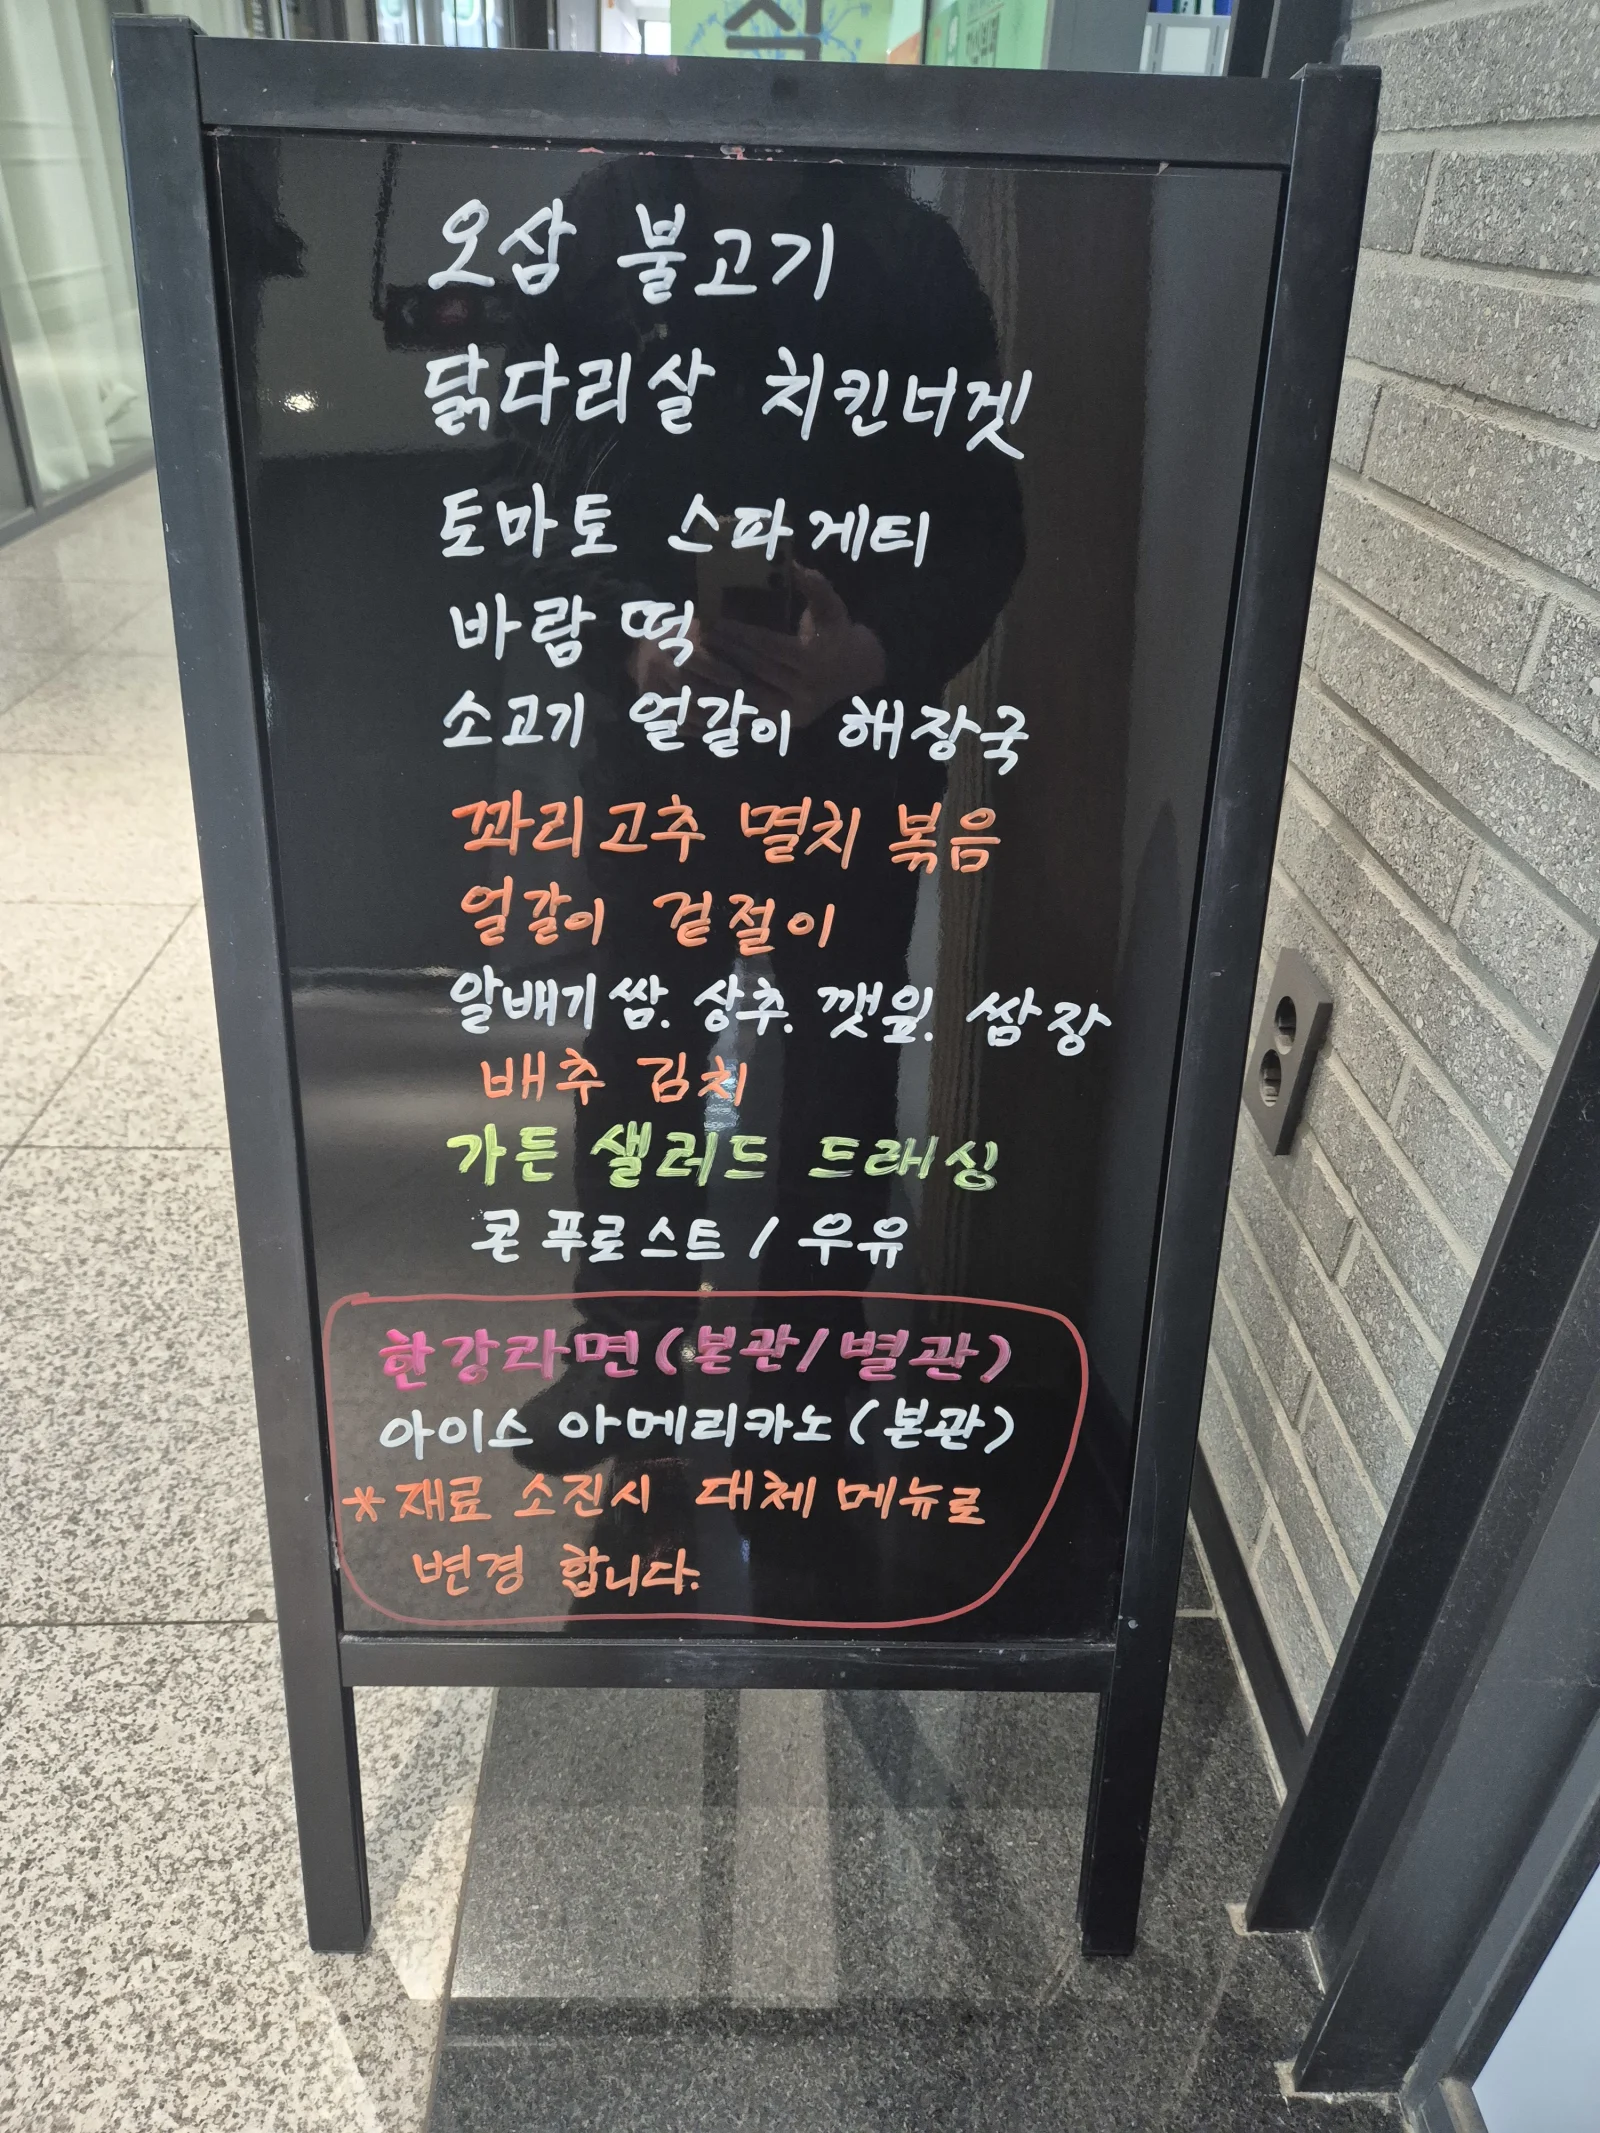 식
오삼 불고기
닭다리살 치킨너겟
토마토 스파게티
바람 떡
소고기 얼갈이 해장국
꽈리고추 멸치 볶음
얼갈이 겉절이
알배기 쌈. 상추. 깻잎. 쌈장
배추 김치
가든 샐러드 드래싱
콘 푸로스트 / 우유
한강라면(본관/별관)
아이스 아메리카노(본관)
*재료 소진시 대체 메뉴로
변경 합니다.